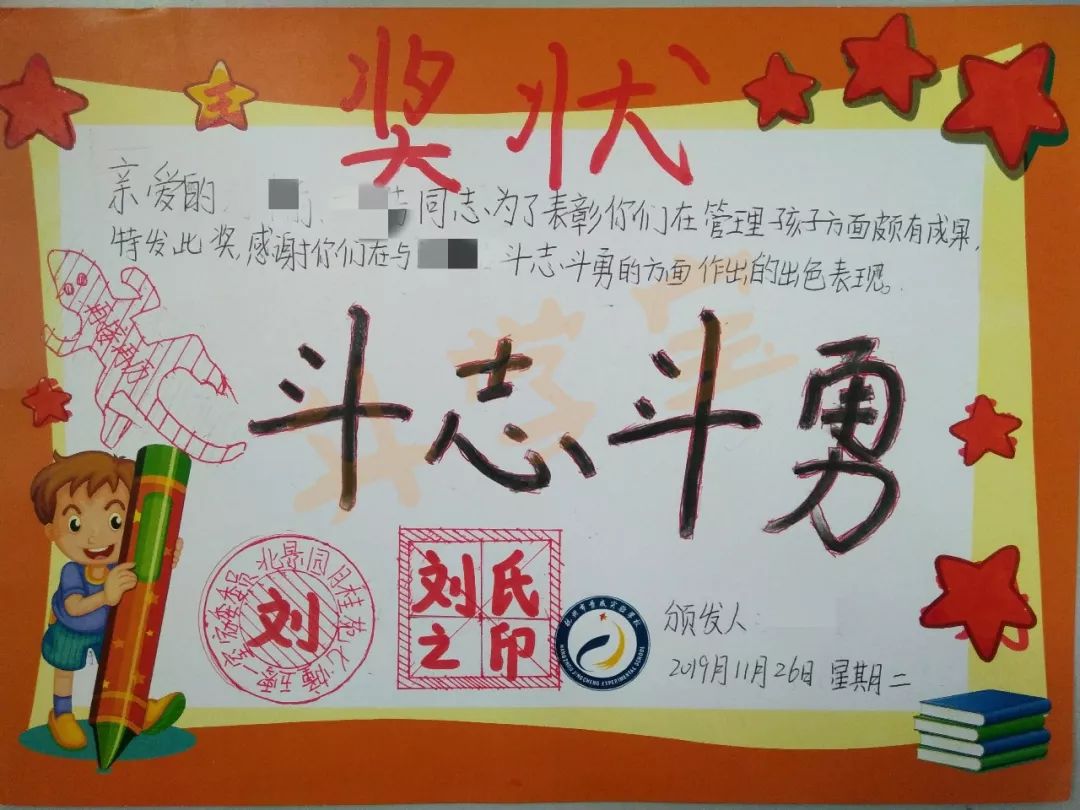 奖状
亲爱的 同志、为了表彰你们在管理孩子方面颇有成果,
特发此奖,感谢你们在与 斗志斗勇的方面作出的出色表现。
斗志斗勇
刘
刘氏
之印
HANGZHOU JINGCHENG EXPERIMENTAL SCHOOL
颁发人:
2019月11月26日 星期二